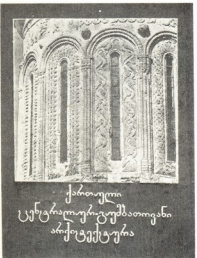 ქართული
ცენტრალურ-გუმბათოვანი
არქიტექტურა